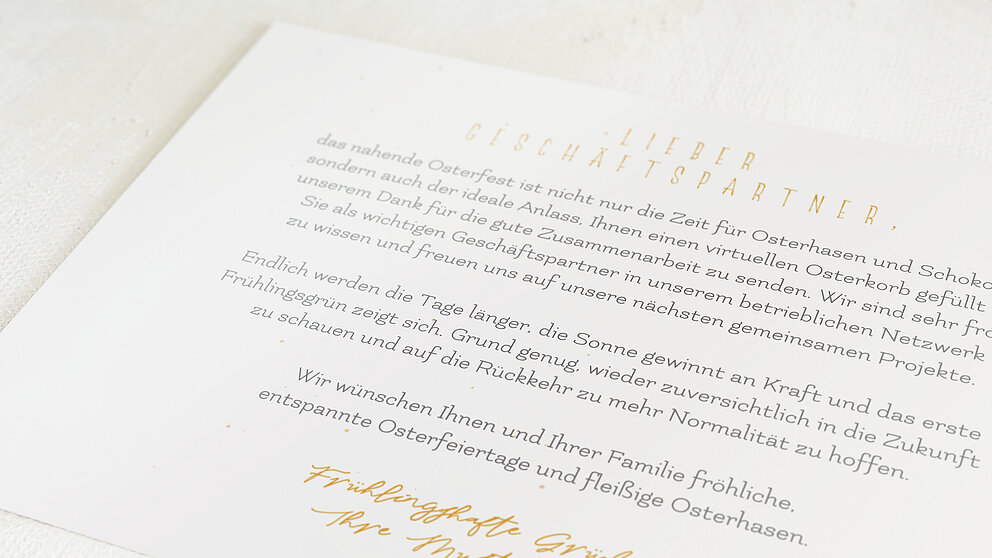 LIEBER
GESCHÄFTSPARTNER,
das nahende Osterfest ist nicht nur die Zeit für Osterhasen und Schoko
sondern auch der ideale Anlass, Ihnen einen virtuellen Osterkorb gefüllt
unserem Dank für die gute Zusammenarbeit zu senden. Wir sind sehr fro
Sie als wichtigen Geschäftspartner in unserem betrieblichen Netzwerk
zu wissen und freuen uns auf unsere nächsten gemeinsamen Projekte.
Endlich werden die Tage länger, die Sonne gewinnt an Kraft und das erste
Frühlingsgrün zeigt sich. Grund genug, wieder zuversichtlich in die Zukunft
zu schauen und auf die Rückkehr zu mehr Normalität zu hoffen.
Wir wünschen Ihnen und Ihrer Familie fröhliche,
entspannte Osterfeiertage und fleißige Osterhasen.
Frühlingshafte
Ihre